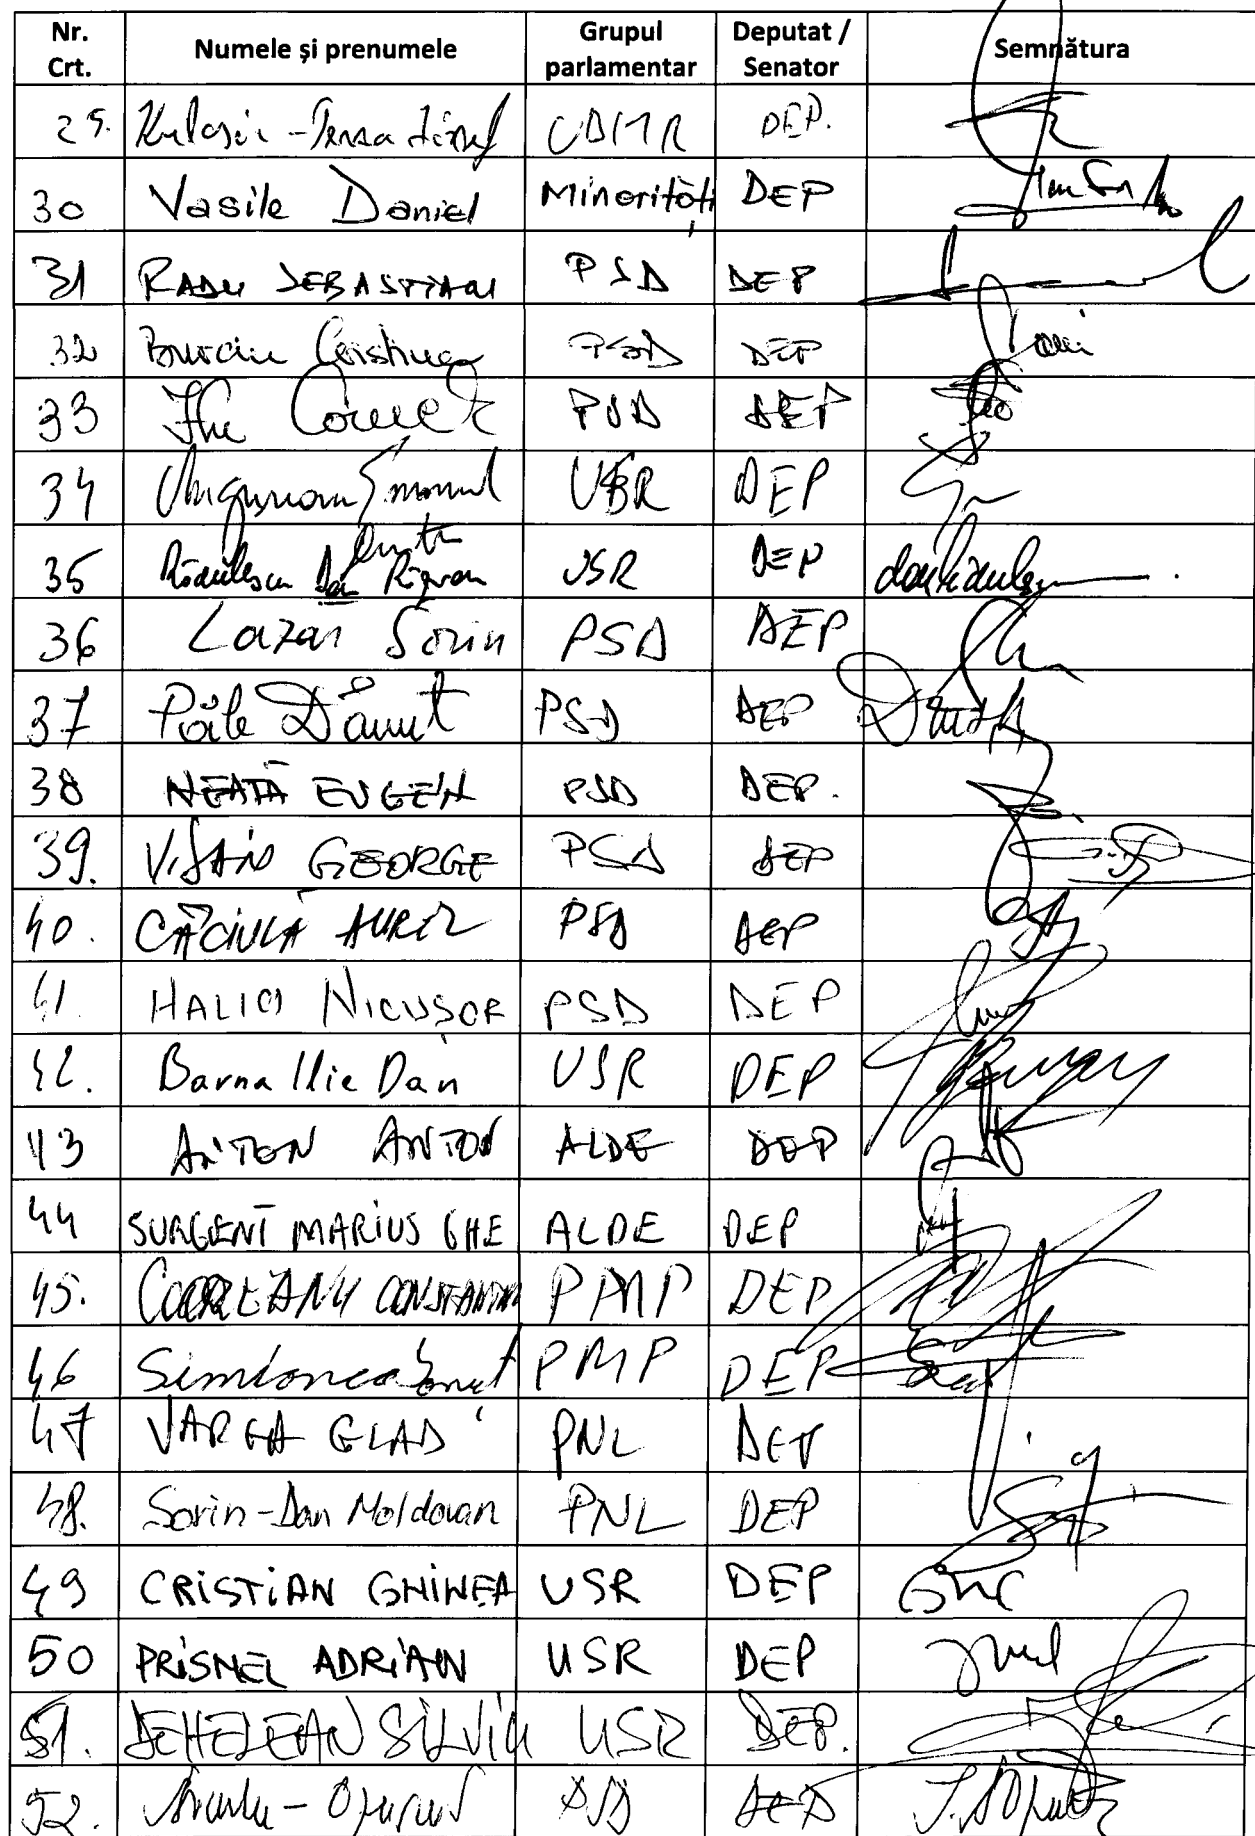 Nr. Crt. Numele și prenumele Grupul parlamentar Deputat / Senator Semnătura
29. Kulcsár-Terza József UDMR DEP.
30 Vasile Daniel Minorități DEP
31 RADU SEBASTIAN PSD DEP
32 Burciu Cristina PSD DEP
33 PSD DEP
34 Ungureanu Emanuel USR DEP
35 Rădulescu Dan Răzvan USR DEP
36 Lazăr Sorin PSD DEP
37 Păle Dănuț PSD DEP
38 NEAȚĂ EUGEN PSD DEP.
39. VIȘAN GEORGE PSD DEP
40. CĂCIULĂ AUREL PSD DEP
41. HALICI NICUȘOR PSD DEP
42. Barna Ilie Dan USR DEP
43 ANTON ANTON ALDE DEP
44 SURGENT MARIUS GHE ALDE DEP
45. CODREANU CONSTANTIN PMP DEP
46 Simionca Ionuț PMP DEP
47 VARGA GLAD PNL DEP
48. Sorin-Dan Moldovan PNL DEP
49 CRISTIAN GHINEA USR DEP
50 PRISNEL ADRIAN USR DEP
51. DEHELEAN SILVIU USR DEP.
52. PSD DEP